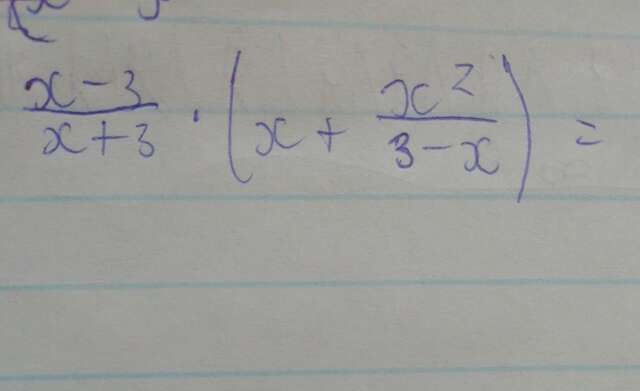 (x-3)/(x+3) · (x + x²/(3-x)) =